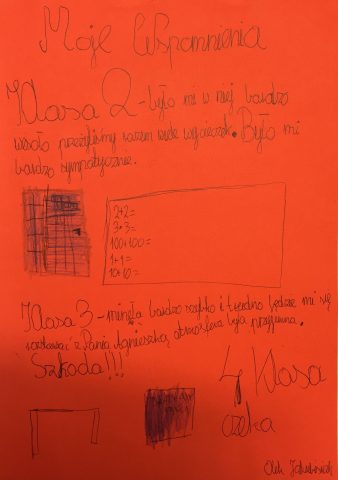 Moje Wspomnienia
Klasa 2 - było mi w niej bardzo
wesoło przeżyliśmy razem wiele wycieczek. Było mi
bardzo sympatycznie.
2+2=
3+3=
100+100=
1+1=
10+10=
Klasa 3 - minęła bardzo szybko i trudno będzie mi się
rozstawać z Panią Agnieszką atmosfera była przyjemna.
Szkoda!!!
4 Klasa
czeka
Olek